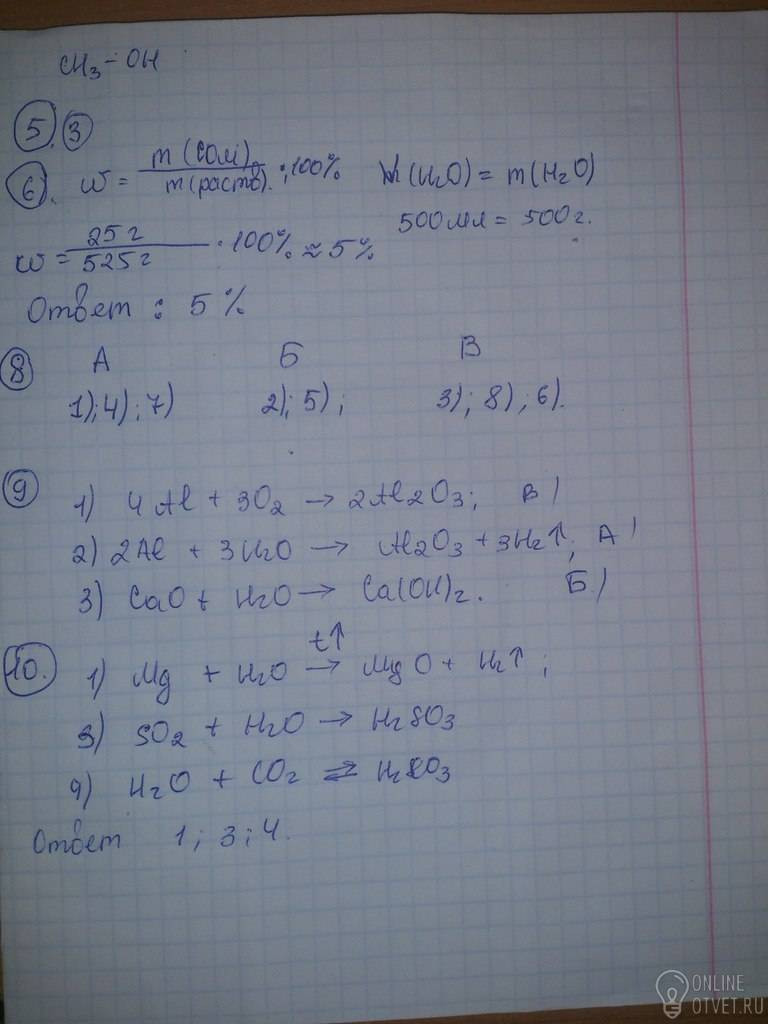 CH₃-OH
5. 3
6). w = m(соли) / m(раств). · 100% V(H₂O) = m(H₂O)
500мл = 500г.
w = 25г / 525г · 100% ≈ 5%
Ответ : 5%
8 А Б В
1); 4); 7) 2); 5); 3); 8), 6).
9 1) 4Al + 3O₂ → 2Al₂O₃; В)
2) 2Al + 3H₂O → Al₂O₃ + 3H₂↑; А)
3) CaO + H₂O → Ca(OH)₂. Б)
t↑
10. 1) Mg + H₂O → MgO + H₂↑;
3) SO₂ + H₂O → H₂SO₃
4) H₂O + CO₂ ⇄ H₂CO₃
Ответ 1; 3; 4.
ONLINE
OTVET.RU